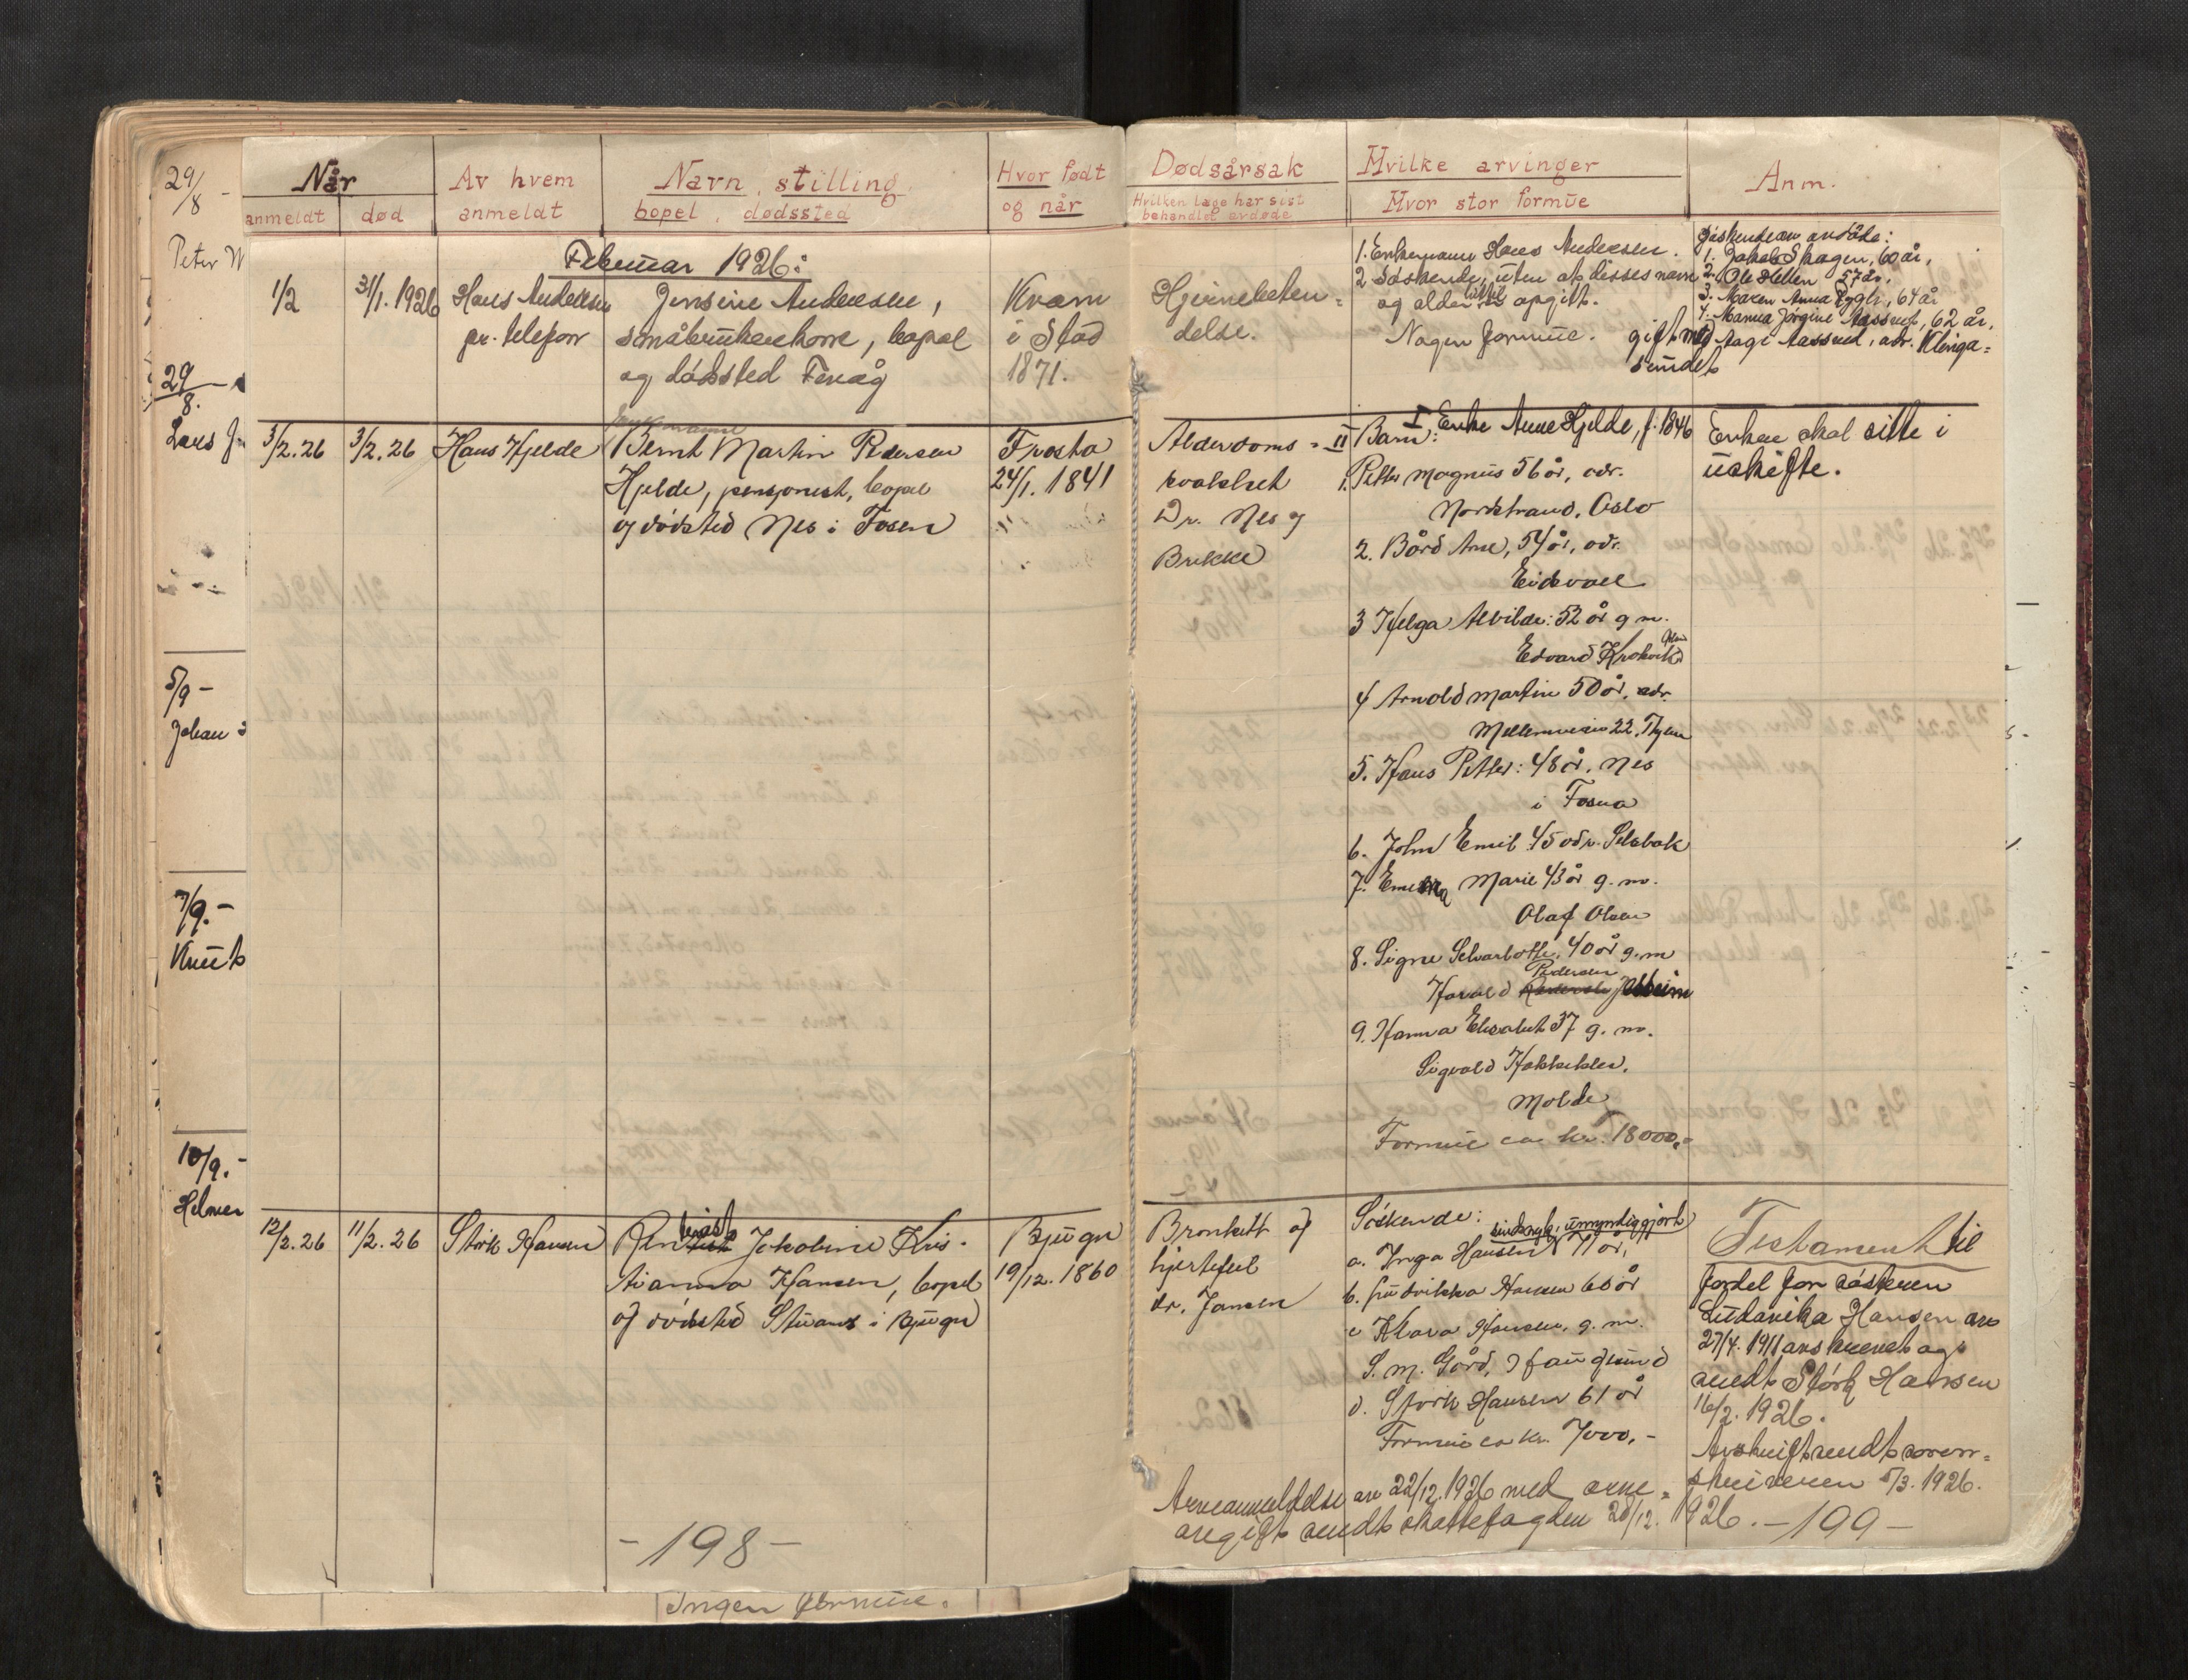 29/8 -
Peter
29/8. -
Lars
5/9 -
Johan
7/9. -
Knut
10/9. -
Helmer
Når
anmeldt død
Av hvem
anmeldt
Navn, stilling,
bopel, dødssted
Hvor født
og når
Februar 1926:
1/2
31/1. 1926
Hans Andersen
pr. telefon
Jensine Andersen,
småbrukerkone, bopel
og dødssted Fevåg
Kvam
i Stod
1871.
3/2. 26
3/2. 26
Hans Hjelde
Bernt Martin Pedersen
Hjelde, pensjonist, bopel
og dødsted Nes i Fosen
Frosta
24/1. 1841
12/2. 26
11/2. 26
Størk Hansen
Jakobine Kris-
tianna Hansen, bopel
og dødsted i Bjugn
Bjugn
19/12. 1860
- 198 -
Ingen formue.
Dødsårsak
Hvilken læge har sist
behandlet avdøde
Hvilke arvinger
Hvor stor formue
Anm.
Hjernebeten=
delse.
1. Enkemann Hans Andersen.
2 Søskende, uten at disses navn
og alder opgitt.
Nogen formue.
Søskende av avdøde:
1. Jakob Skagen, 60 år,
2. Ole Hellen 57 år,
3. Maren Anna 64 år
4. Manna Jørgine Aasved, 62 år,
gift med Aage Aasved, adr. Klinga=
sundet
Alderdoms=
svakhet
Dr. Nes og
Brekke
I Enke Anne Hjelde, f. 1846
II Barn:
1. Petter Magnus 56 år, adr.
Nordstrand, Oslo
2. Bård Arne, 54 år, adr.
Eidsvoll
3 Helga Alvilde: 52 år g m.
Edvard
4 Arnold Martin 50 år. adr.
Mellemveien 22, Thjem
5. Hans Petter: 48 år. Nes
i Fosna
6. John Emil 45 adr. Selsbak
7. Emma Marie 43 år g. m.
Olaf Olsen
8. Signe 40 år g. m
Pedersen
Harald
9. Hanna Elisabet 37 g. m.
Sigvald
Molde
Formue ca kr. 18000,-
Enken skal sitte i
uskifte.
Bronkitt og
hjertefeil
dr. Jansen
Søskende:
sindssyk, umyndiggjort
a. Inga Hansen 71 år,
b. Ludvikka Hansen 60 år
c Klara Hansen, g. m.
S. M. Gård, Haugsund
d. Størk Hansen 61 år
Formue ca kr. 7000,-
Testament til
fordel for søsteren
Ludavika Hansen av
27/4. 1911 avskrevet og
sendt Størk Hansen
16/2. 1926.
Avskrift sendt soren=
skriveren 5/3. 1926.
Arveanmeldelse av 22/12. 1926 med arve=
avgift sendt skattefogden 28/12. 1926.
- 199 -